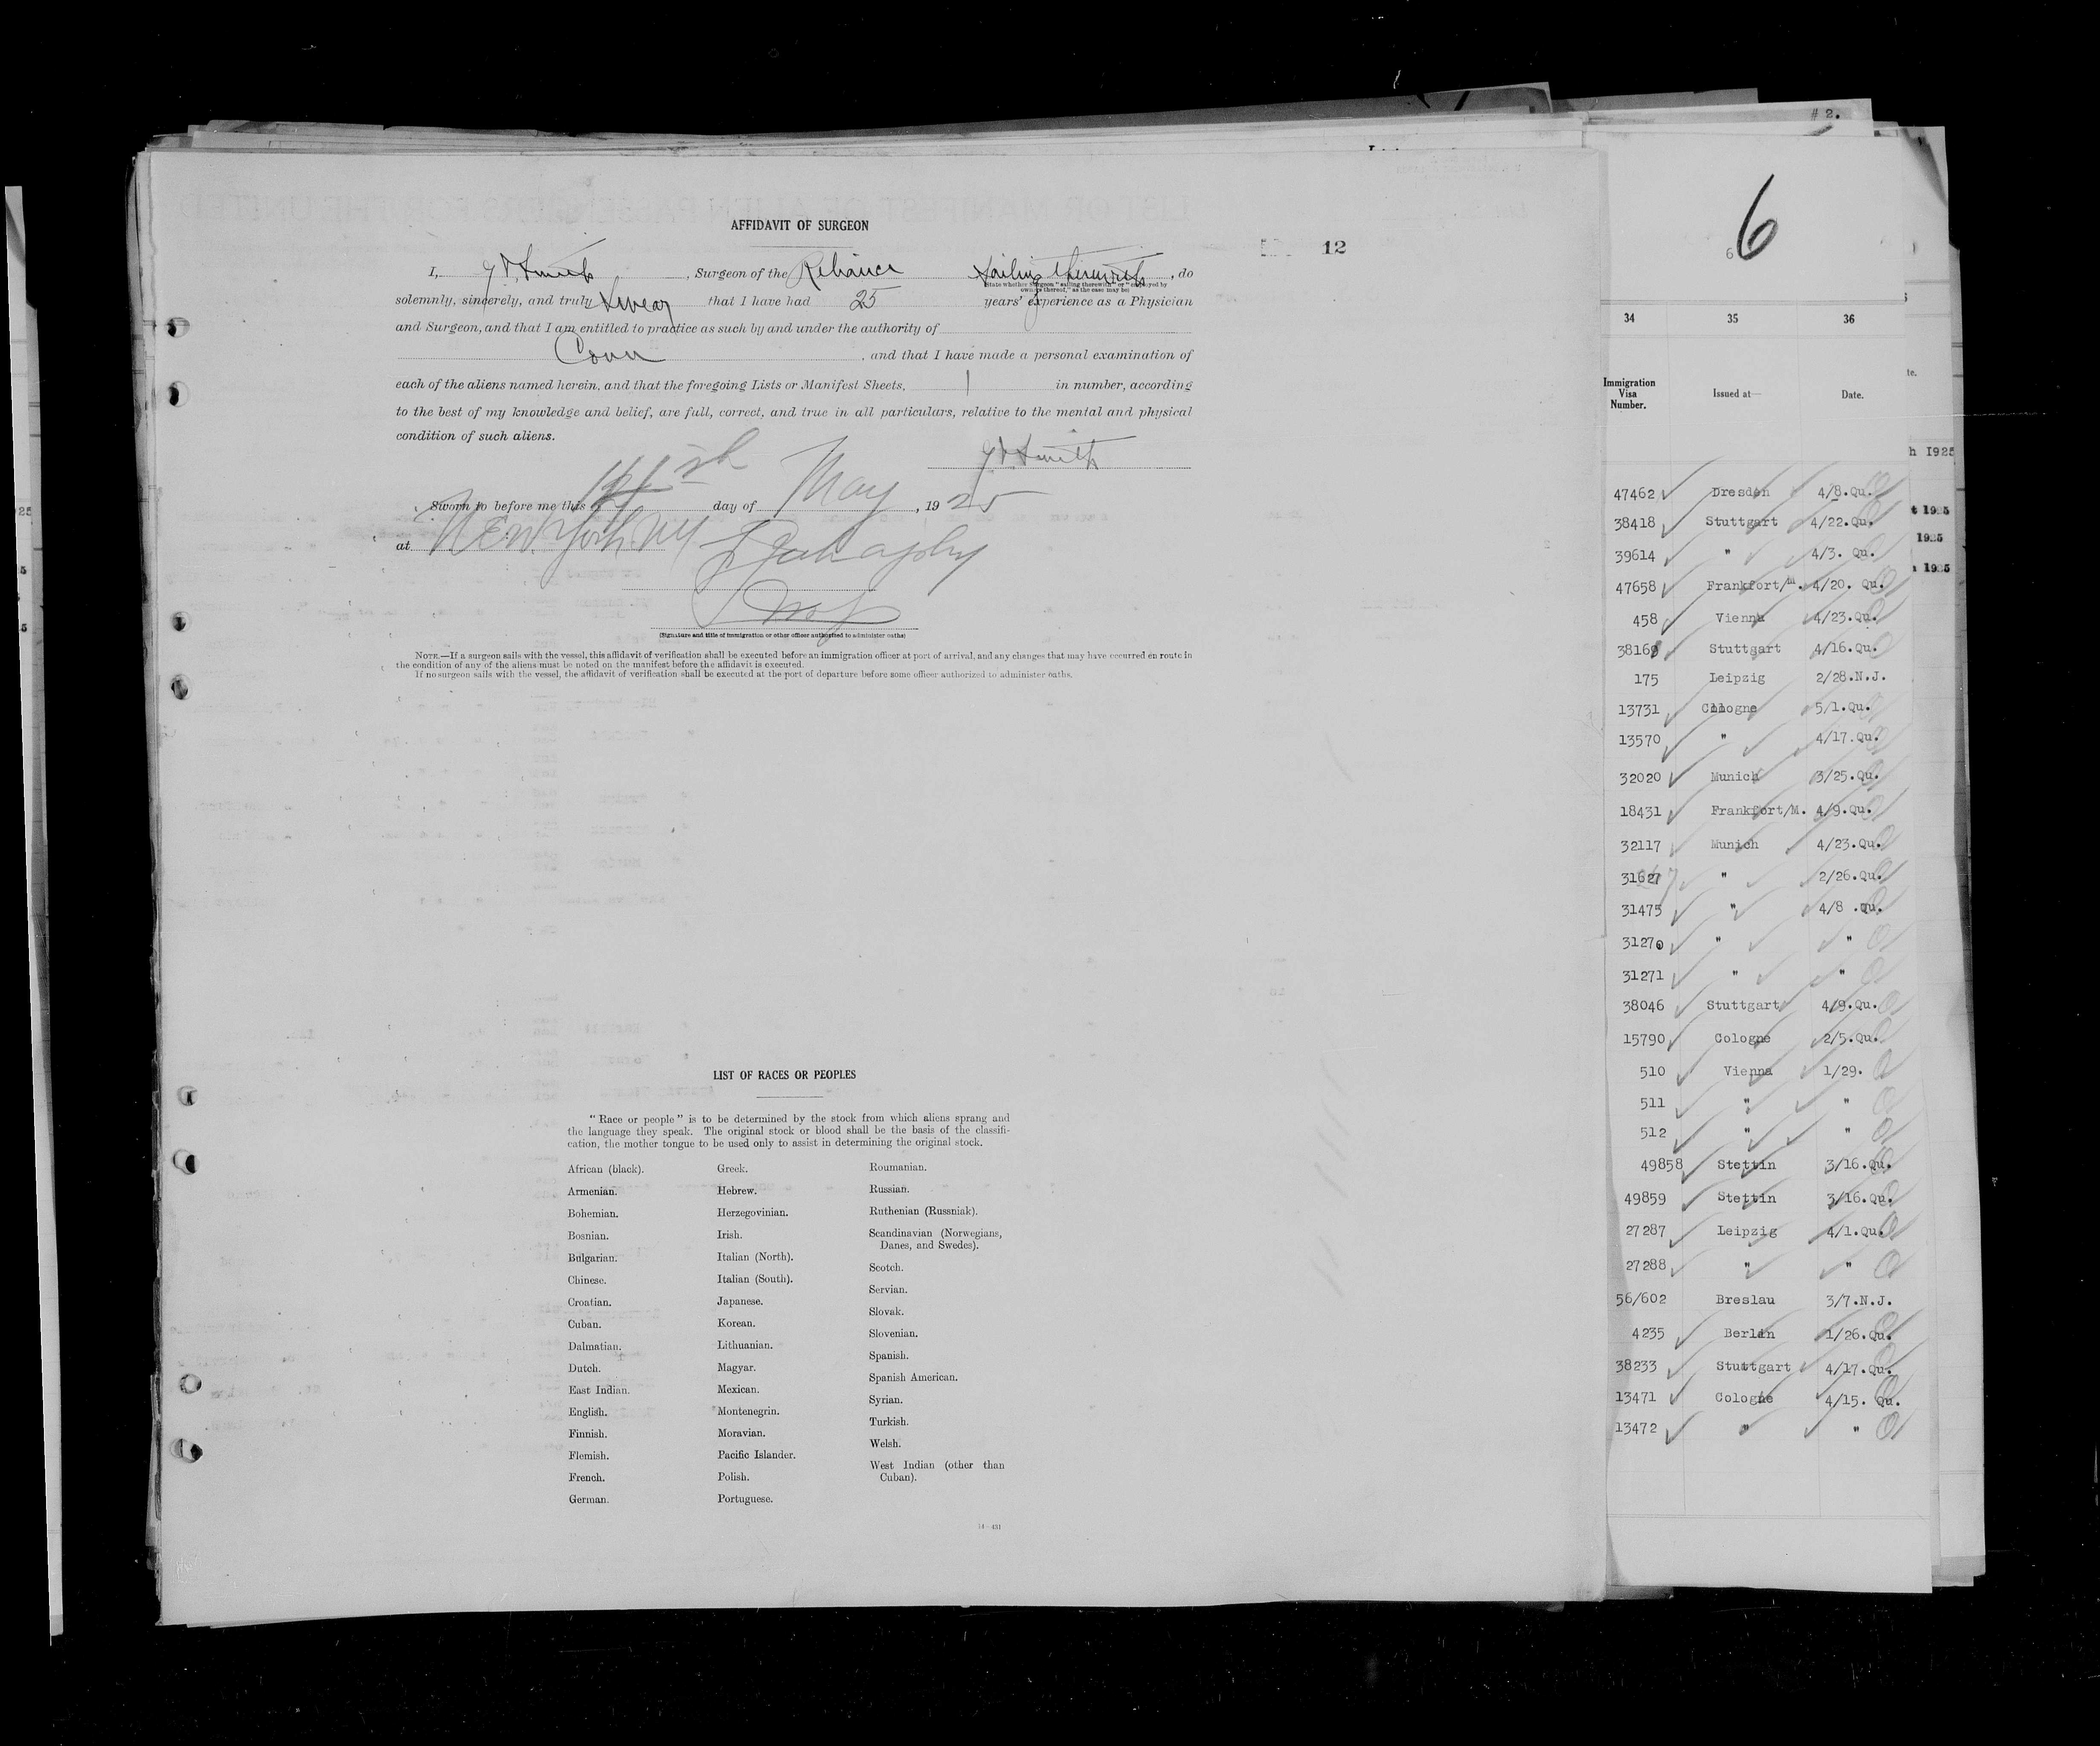 # 2.
AFFIDAVIT OF SURGEON
12
I, Smith, Surgeon of the Reliance sailing therewith, do
(State whether Surgeon "sailing therewith" or "employed by
owners thereof," as the case may be)
solemnly, sincerely, and truly swear that I have had 25 years' experience as a Physician
and Surgeon, and that I am entitled to practice as such by and under the authority of
Conn, and that I have made a personal examination of
each of the aliens named herein, and that the foregoing Lists or Manifest Sheets, 1 in number, according
to the best of my knowledge and belief, are full, correct, and true in all particulars, relative to the mental and physical
condition of such aliens.
Smith
Sworn to before me this day of May, 1925
at New York NY
(Signature and title of immigration or other officer authorized to administer oaths)
NOTE.—If a surgeon sails with the vessel, this affidavit of verification shall be executed before an immigration officer at port of arrival, and any changes that may have occurred en route in
the condition of any of the aliens must be noted on the manifest before the affidavit is executed.
If no surgeon sails with the vessel, the affidavit of verification shall be executed at the port of departure before some officer authorized to administer oaths.
LIST OF RACES OR PEOPLES
"Race or people" is to be determined by the stock from which aliens sprang and
the language they speak. The original stock or blood shall be the basis of the classifi-
cation, the mother tongue to be used only to assist in determining the original stock.
African (black).
Armenian.
Bohemian.
Bosnian.
Bulgarian.
Chinese.
Croatian.
Cuban.
Dalmatian.
Dutch.
East Indian.
English.
Finnish.
Flemish.
French.
German.
Greek.
Hebrew.
Herzegovinian.
Irish.
Italian (North).
Italian (South).
Japanese.
Korean.
Lithuanian.
Magyar.
Mexican.
Montenegrin.
Moravian.
Pacific Islander.
Polish.
Portuguese.
Roumanian.
Russian.
Ruthenian (Russniak).
Scandinavian (Norwegians,
Danes, and Swedes).
Scotch.
Servian.
Slovak.
Slovenian.
Spanish.
Spanish American.
Syrian.
Turkish.
Welsh.
West Indian (other than
Cuban).
14—431
6
6
34 35 36
Immigration
Visa
Number.
Issued at—
Date.
47462 Dresden 4/8.Qu.
38418 Stuttgart 4/22.Qu.
39614 " 4/3. Qu.
47658 Frankfort/M. 4/20. Qu.
458 Vienna 4/23.Qu.
38169 Stuttgart 4/16.Qu.
175 Leipzig 2/28.N.J.
13731 Cologne 5/1.Qu.
13570 " 4/17.Qu.
32020 Munich 3/25.Qu.
18431 Frankfort/M. 4/9.Qu.
32117 Munich 4/23.Qu.
31627 " 2/26.Qu.
31475 " 4/8 .Qu.
31270 " "
31271 " "
38046 Stuttgart 4/9.Qu.
15790 Cologne 2/5.Qu.
510 Vienna 1/29.
511 " "
512 " "
49858 Stettin 3/16.Qu.
49859 Stettin 3/16.Qu.
27287 Leipzig 4/1.Qu.
27288 " "
56/602 Breslau 3/7.N.J.
4235 Berlin 1/26.Qu.
38233 Stuttgart 4/17.Qu.
13471 Cologne 4/15. Qu.
13472 " "
te.
h 1925
1925
1925
1925